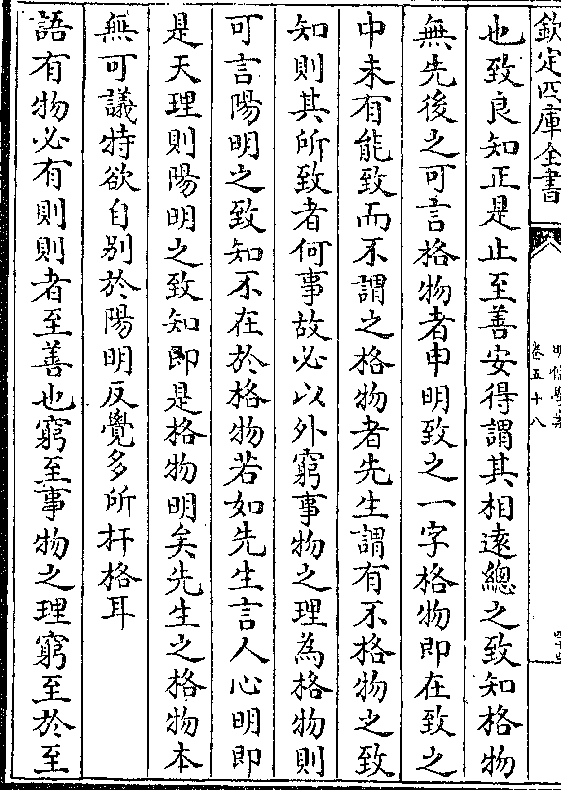 欽定四庫全書
明儒學案
卷五十八
也致良知正是止至善安得謂其相逺總之致知格物
無先後之可言格物者申明致之一字格物即在致之
中未有能致而不謂之格物者先生謂有不格物之致
知則其所致者何事故必以外窮事物之理為格物則
可言陽明之致知不在於格物若如先生言人心明即
是天理則陽明之致知即是格物明矣先生之格物本
無可議特欲自别於陽明反覺多所扞格耳
語有物必有則則者至善也窮至事物之理窮至於至